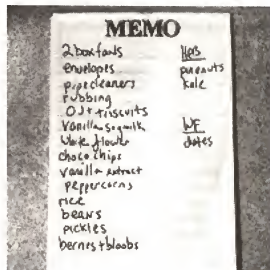 MEMO
2 box fans
envelopes
pipecleaners
rubbing
OJ + triscuits
vanilla soymilk
white flour
choco chips
vanilla extract
peppercorns
rice
beans
pickles
HEB
pinenuts
kale
WF
dates